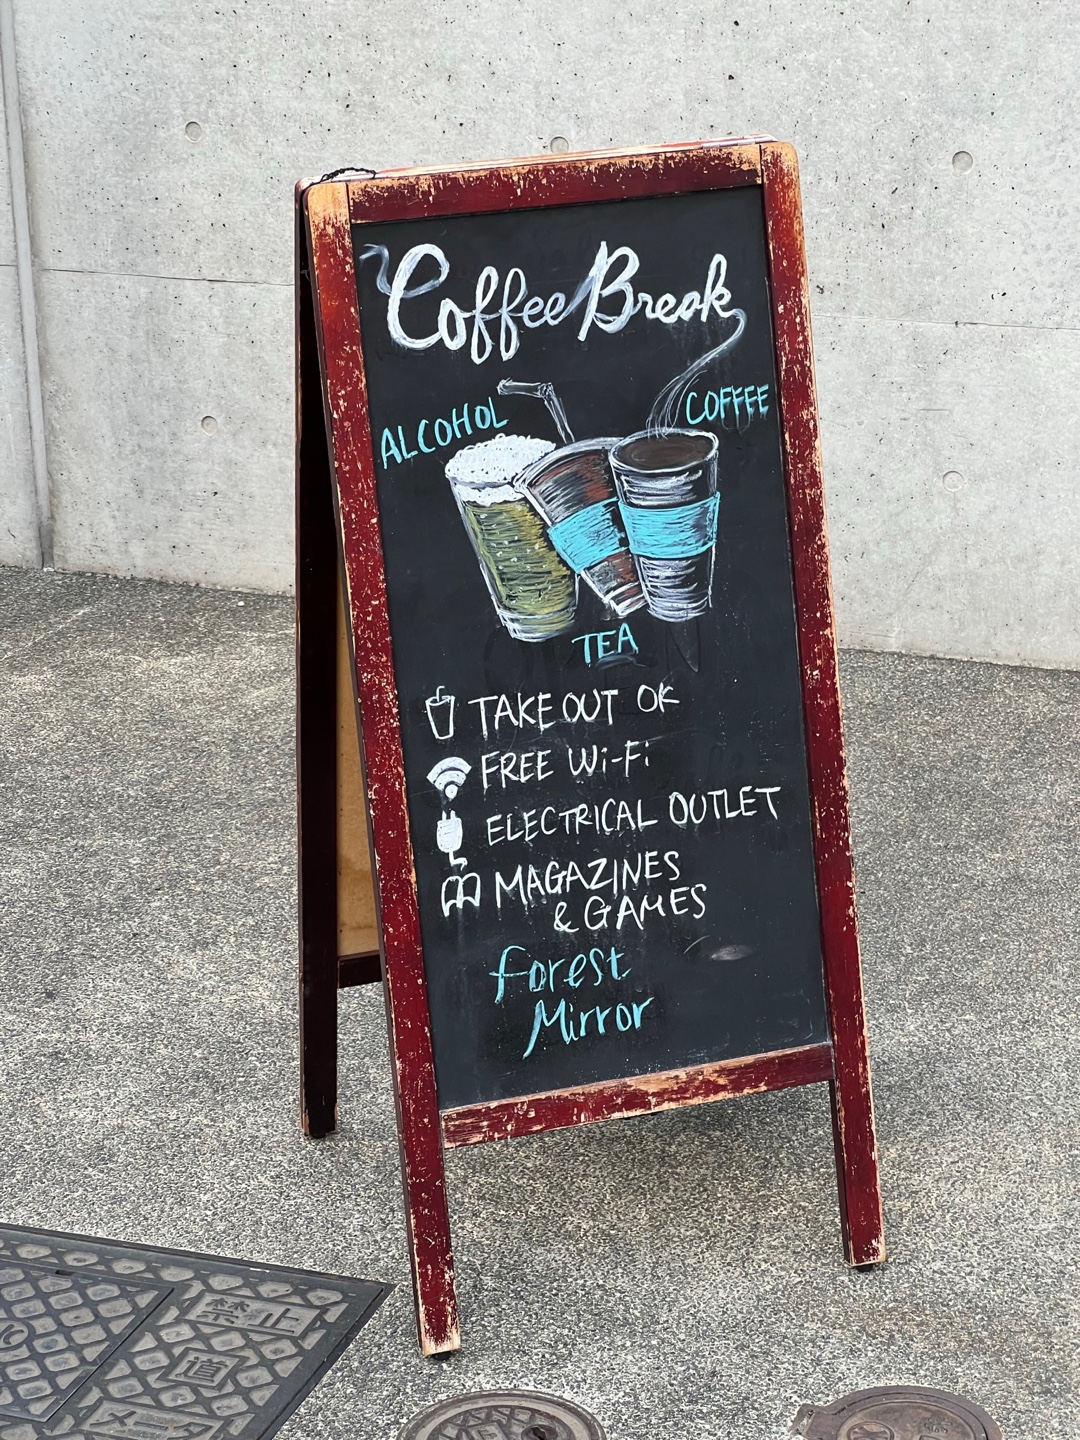 Coffee Break
ALCOHOL
COFFEE
TEA
TAKE OUT OK
FREE Wi-Fi
ELECTRICAL OUTLET
MAGAZINES
& GAMES
forest
Mirror
禁止
道
メータ